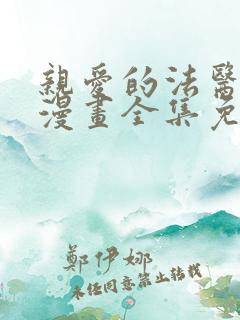 親愛的法醫
漫畫全集免
鄭伊娜
未經同意禁止轉載